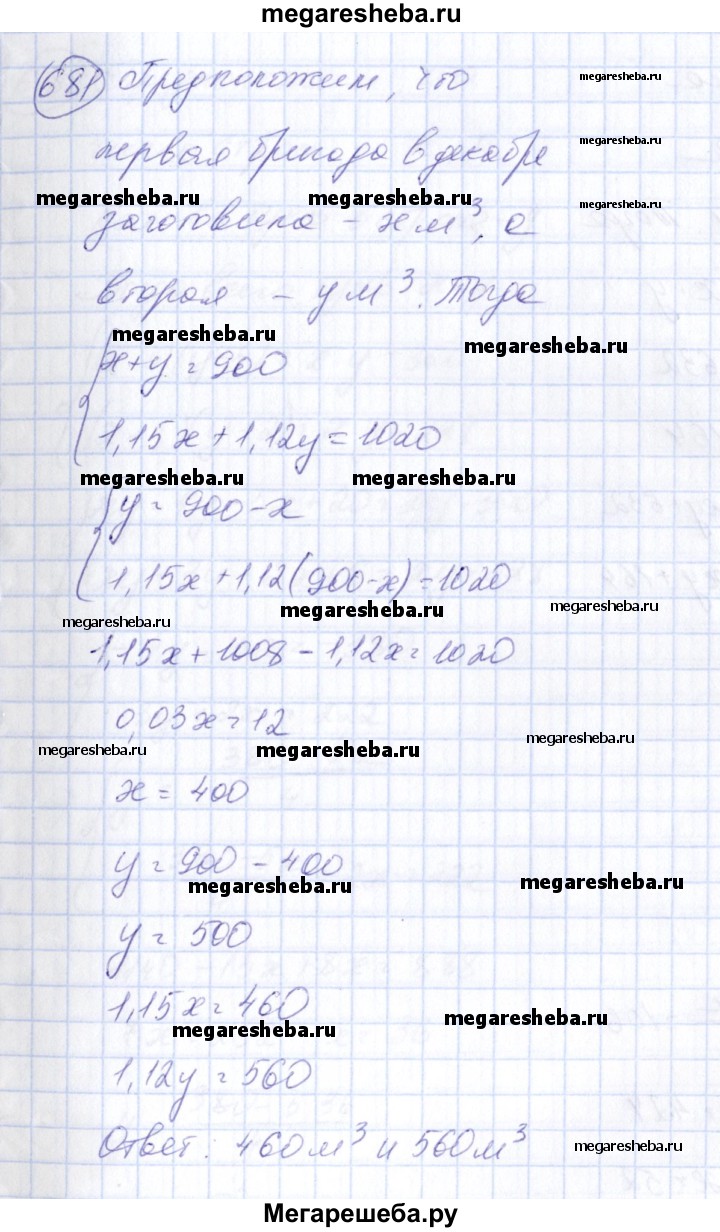 megaresheba.ru
681 Предположим, что
megaresheba.ru
первая бригада в декабре
megaresheba.ru
megaresheba.ru megaresheba.ru megaresheba.ru
заготовила - x м³, а
вторая - y м³. Тогда
megaresheba.ru megaresheba.ru
x+y=900
1,15x+1,12y=1020
megaresheba.ru megaresheba.ru
y=900-x
1,15x+1,12(900-x)=1020
megaresheba.ru megaresheba.ru megaresheba.ru
1,15x+1008-1,12x=1020
0,03x=12
megaresheba.ru megaresheba.ru megaresheba.ru
x=400
y=900-400
megaresheba.ru megaresheba.ru
y=500
1,15x=460
megaresheba.ru megaresheba.ru
1,12y=560
Ответ: 460м³ и 560м³
megaresheba.ru
Мегарешеба.ру